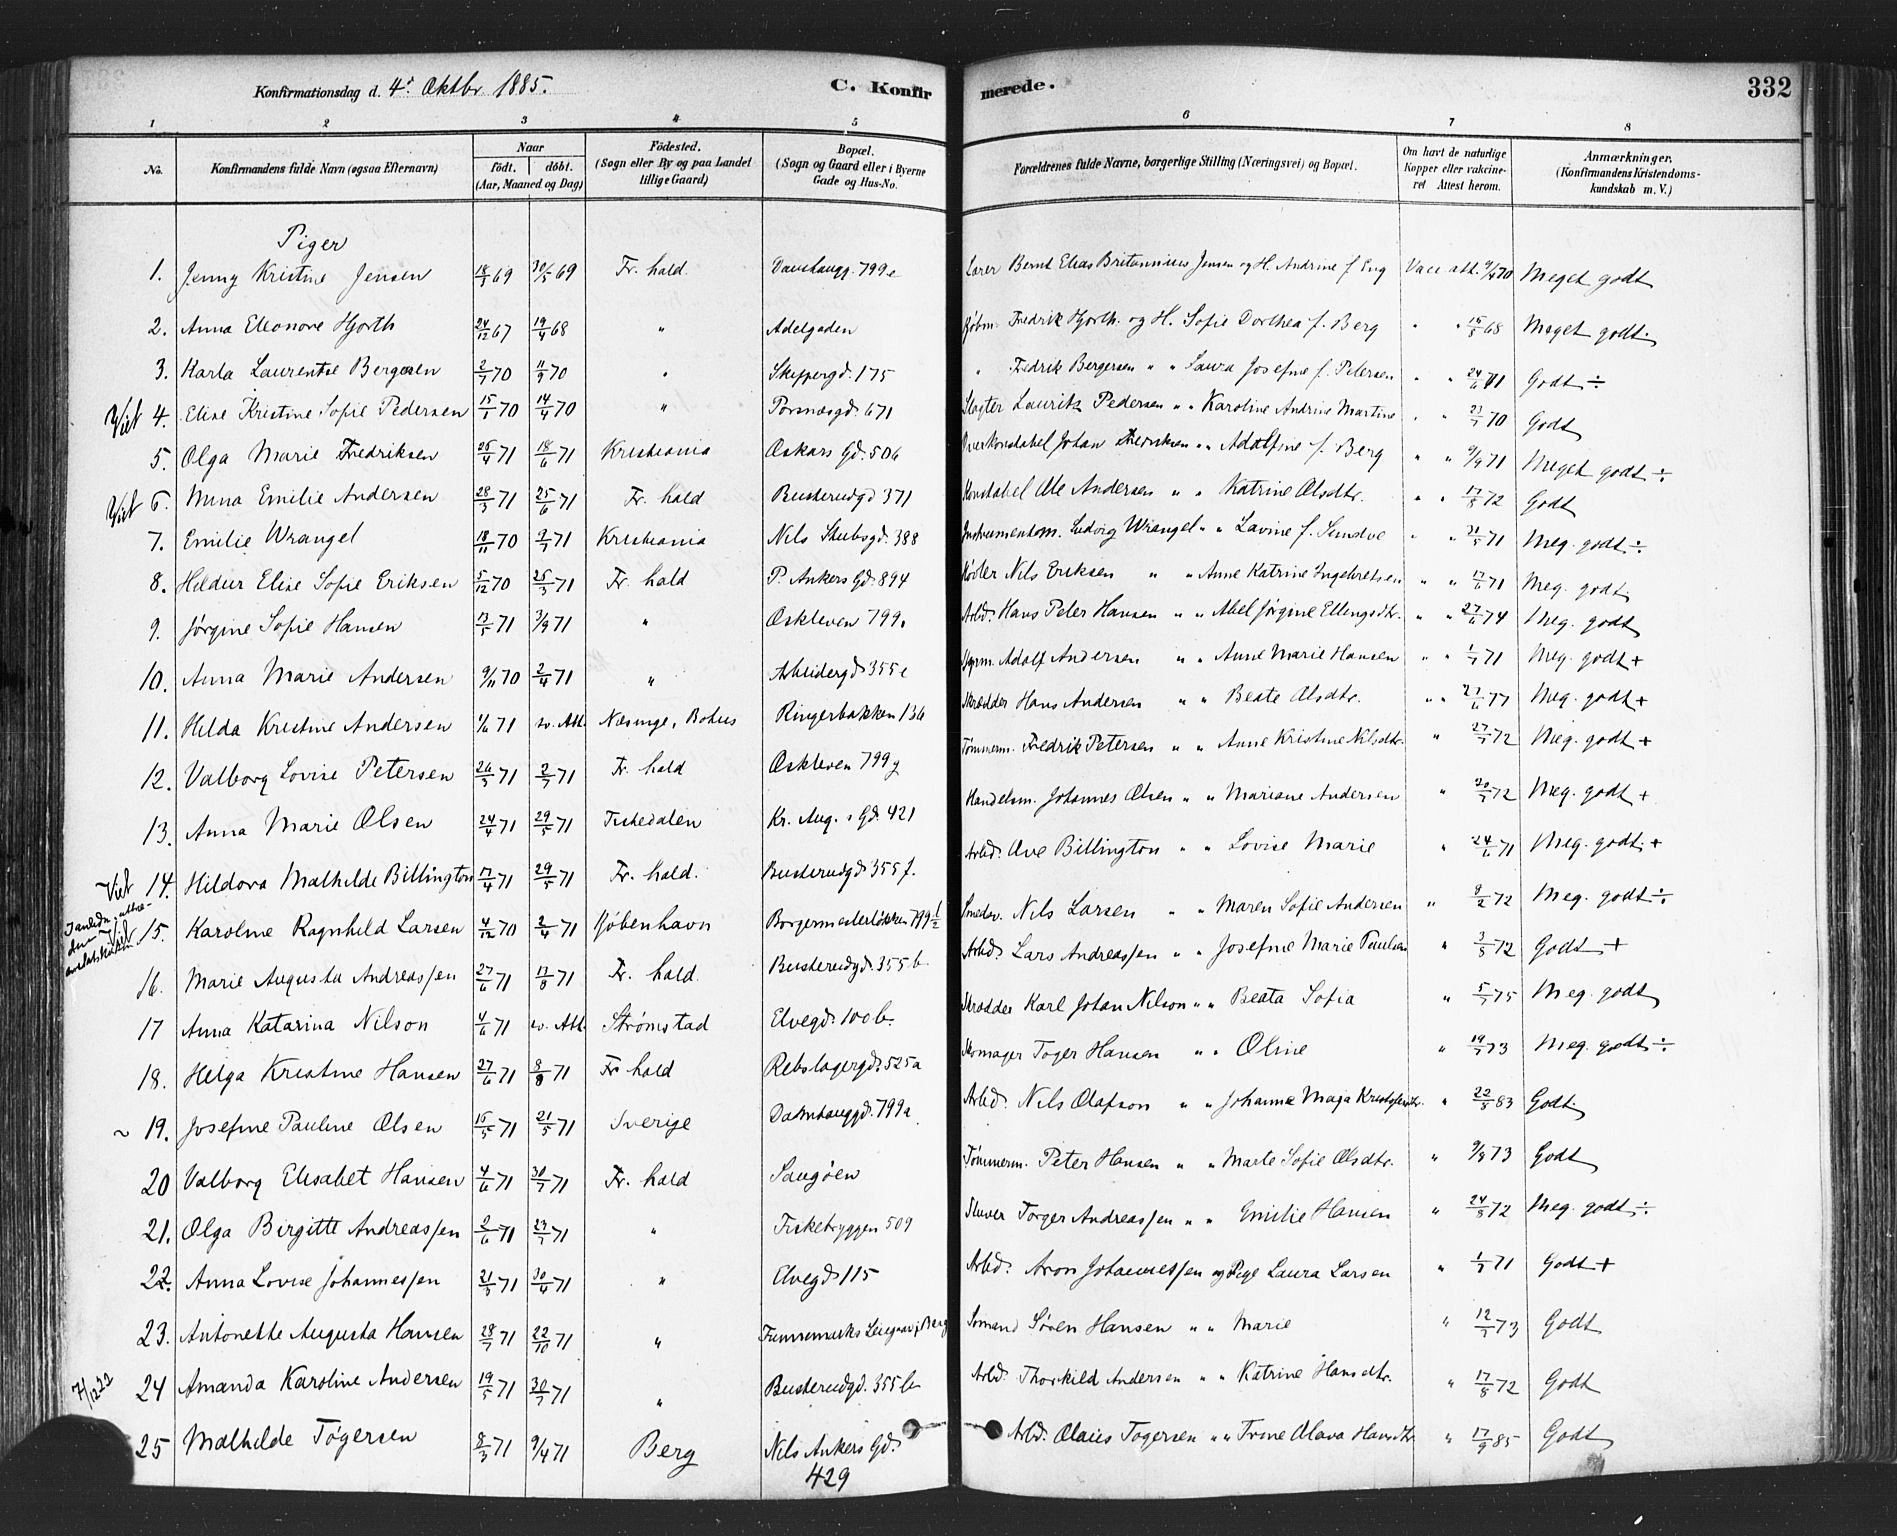 Konfirmationsdag d. 4de Oktbr 1885.
C. Konfirmerede.
332
1 2 3 4 5 6 7 8
No. Konfirmandens fulde Navn (ogsaa Efternavn) Naar födt. döbt. (Aar, Maaned og Dag) Födested. (Sogn eller By og paa Landet tillige Gaard) Bopæl. (Sogn og Gaard eller i Byerne Gade og Hus-No. Forældrenes fulde Navne, borgerlige Stilling (Næringsvei) og Bopæl. Om havt de naturlige Kopper eller vakcineret Attest herom. Anmærkninger. (Konfirmandens Kristendomskundskab m. V.)
Piger
1. Jenny Kristine Jensen 18/3 69 30/5 69 Fr. hald Damhaugg. 799e Lærer Bernt Elias Britannius Jensen og H. Andrine f. Eng Vacc. att. 9/4 70 Meget godt
2. Anna Eleonore Hjorth 24/12 67 19/4 68 " Adelgaden Kjøbm. Fredrik Hjorth og H. Sofie Dorthea f. Berg " " 15/8 68 Meget godt
3. Karla Laurentse Bergersen 2/7 70 11/9 70 " Skippergd. 175 " Fredrik Bergersen " " Laura Josefine f. Petersen " " 24/6 71 Godt ÷
Viet 4. Elise Kristine Sofie Pedersen 15/1 70 14/4 70 " Torsnæsgd. 671 Slagter Laurits Pedersen " " Karoline Andrine Martine " " 23/7 70 Godt
5. Olga Marie Fredriksen 25/4 71 18/6 71 Kristiania Oskars Gd. 506 Overkonstabel Johan Fredriksen " " Adolfine f. Berg " " 9/9 71 Meget godt ÷
Viet 6. Mina Emilie Andersen 28/3 71 25/6 71 Fr. hald Busterudgd 371 Konstabel Ole Andersen " " Katrine Olsdtr. " " 17/8 72 Godt
7. Emilie Wrangel 18/11 70 9/7 71 Kristiania Nils Stubsgd. 388 Instrumentm. Ludvig Wrangel " " Lavine f. " " 21/5 71 Meg. godt ÷
8. Hildur Elise Sofie Eriksen 5/12 70 25/3 71 Fr. hald P. Ankers Gd. 894 Nils Eriksen " " Anne Katrine Ingebretsen " " 17/6 71 Meg. godt
9. Jørgine Sofie Hansen 13/5 71 3/9 71 " Oskleven 799. Arbd. Hans Peter Hansen " " Abel Jørgine Ellingsdtr. " " 27/6 74 Meg. godt
10. Anna Marie Andersen 9/11 70 2/4 71 " Arbeidergd 355e Adolf Andersen " " Anne Marie Hansen " " 1/7 71 Meg. godt +
11. Hilda Kristine Andersen 1/6 71 sv. Att. Næsinge, Bohus Ringerbakken 136 Skrædder Hans Andersen " " Beate Olsdtr. " " 27/6 77 Meg. godt +
12. Valborg Lovise Petersen 26/3 71 2/7 71 Fr. hald Oskleven 799g Tømmerm. Fredrik Petersen " " Anne Kristine Nilsdtr. " 27/7 72 Meg. godt +
13. Anna Marie Olsen 24/4 71 29/5 71 Tistedalen Kr. Aug. s Gd. 421 Handelsm. Johannes Olsen " " Mariane Andersen " 20/7 72 Meg. godt +
Viet 14. Hildora Mathilde Billington 17/4 71 29/5 71 Fr. hald. Busterudgd 355f. Arbd. Ave Billington " " Lovise Marie " 24/6 71 Meg. godt +
15. Karoline Ragnhild Larsen 4/12 70 2/4 71 Kjøbenhavn Borgermesterløkken 799 1/2 Smedsv. Nils Larsen " " Maren Sofie Andersen " 9/2 72 Meg. godt ÷
16. Marie Augusta Andreassen 27/6 71 13/8 71 Fr. hald. Busterudgd. 355b Arbd. Lars Andreassen " " Josefine Marie Paulsen " 3/8 72 Godt +
17 Anna Katarina Nilson 4/6 71 sv. Att. Strømstad Elvegd. 100b. Skrædder Karl Johan Nilson " " Beata Sofia " 5/7 75 Meg. godt
18. Helga Kristine Hansen 27/6 71 8/8 71 Fr hald Rebslagergd. 525a Skomager Toger Hansen " " Oline " 19/7 73 Meg. godt ÷
~ 19. Josefine Pauline Olsen 15/5 71 21/5 71 Sverige Damhauggd. 799a Arbd. Nils Olafson " " Johanne Maja Kristofersdtr. " 22/8 83 Godt
20 Valborg Elisabet Hansen 4/6 71 30/7 71 Fr. hald Saugøen Tømmerm. Peter Hansen " " Marte Sofie Olsdtr. " 9/8 73 Godt
21. Olga Birgitte Andreassen 2/6 71 23/7 71 " Fiskebryggen 509 Stuver Torger Andreassen " " Emilie Hansen " 24/8 72 Meg. godt ÷
22. Anna Lovise Johannessen 21/3 71 30/4 71 " Elvegd 115 Arbd. Aron Johannessen og Pige Laura Larsen " 1/7 71 Godt +
23. Antonette Augusta Hansen 28/7 71 22/10 71 " Berg Sømand Søren Hansen " " Marie " 12/7 73 Godt
7/12 22 24 Amanda Karoline Andersen 19/5 71 30/7 71 " Busterudgd. 355b Arbd. Thorkild Andersen " " Katrine Hansdtr. " 17/8 72 Godt
25 Mathilde Tøgersen 8/3 71 9/4 71 Berg Nils Ankers Gd. 429 Arbd. Olaus Tøgersen " " Trine Olava Hansdtr " 17/9 85 Godt